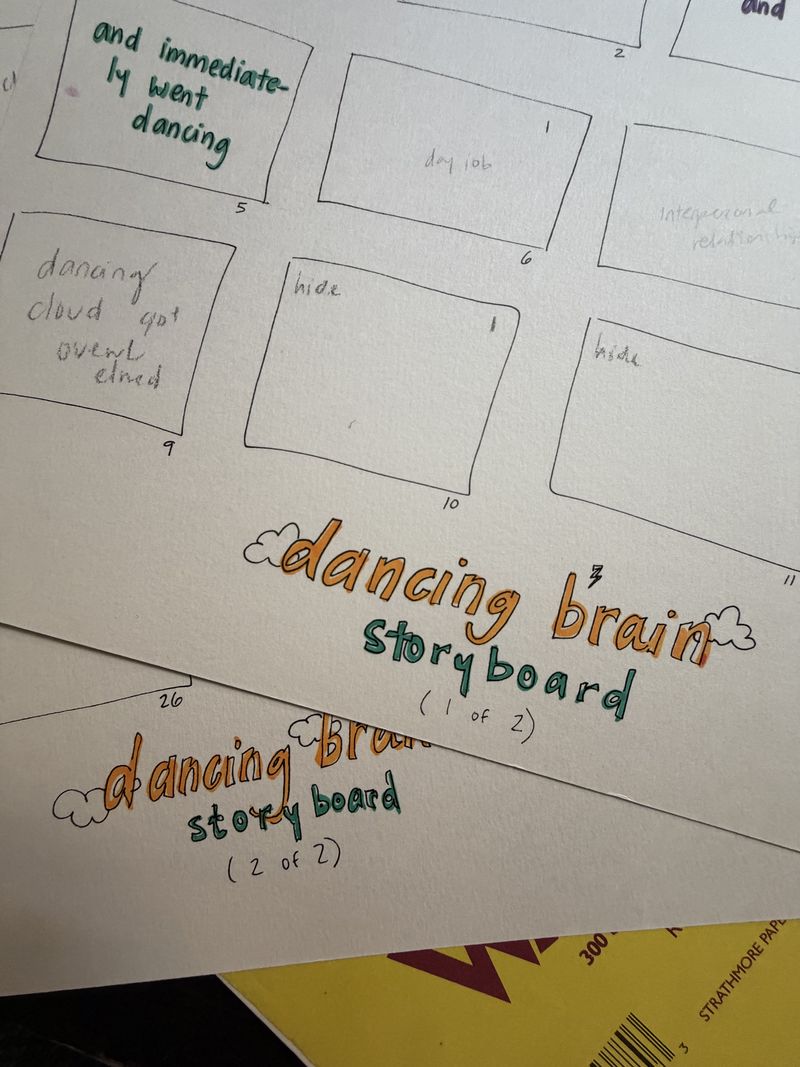 and
2
and immediate-
ly went
dancing
5
1
day job
6
Interpersonal
relationships
dancing
cloud got
overwl
elmed
9
hide
1
10
hide
11
dancing brain
storyboard
(1 of 2)
26
dancing brain
storyboard
(2 of 2)
300
STRATHMORE PAPE
3